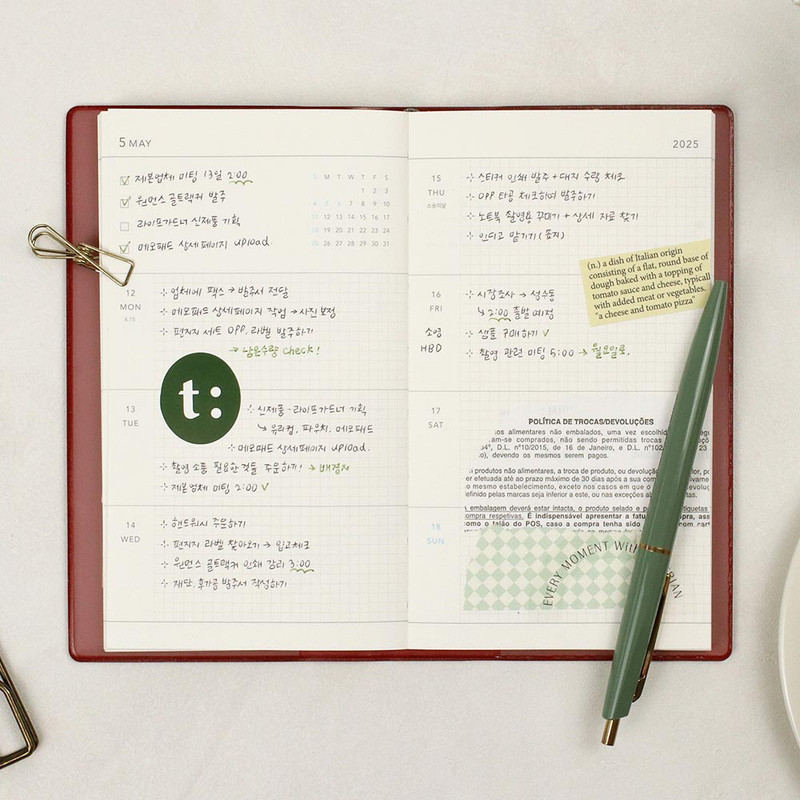 5 MAY
제본업체 미팅 13일 2:00
원먼스 골트래커 발주
라이프가드너 신제품 기획
메모패드 상세페이지 upload.
S M T W T F S
1 2 3
4 5 6 7 8 9 10
11 12 13 14 15 16 17
18 19 20 21 22 23 24
25 26 27 28 29 30 31
12
MON
4.15
업체에 팩스 → 발주서 전달
메모패드 상세페이지 작업 → 사진 보정
편지지 세트 OPP, 라벨 발주하기
→ 남은수량 check!
13
TUE
t:
신제품 - 라이프가드너 기획
↳ 유리컵, 파우치, 메모패드
메모패드 상세페이지 upload.
촬영 소품 필요한것들 주문하기! → 배경지
제본업체 미팅 2:00 ✓
14
WED
핸드워시 주문하기
편지지 라벨 찾아오기 → 입고체크
원먼스 골트래커 인쇄 감리 3:00
재단, 후가공 발주서 작성하기
2025
15
THU
스승의날
스티커 인쇄 발주 + 대지 수량 체크
OPP 타공 체크하며 발주하기
노트북 촬영용 꾸미기 + 상세 자료 찾기
인디고 맡기기 (표지)
(n.) a dish of Italian origin
consisting of a flat, round base of
dough baked with a topping of
tomato sauce and cheese, typicall
with added meat or vegetables.
"a cheese and tomato pizza"
16
FRI
소영
HBD
시장조사 → 성수동
↳ 2:00 출발 예정
샘플 구매하기 ✓
촬영 관련 미팅 5:00 → 월요일로.
17
SAT
POLÍTICA DE TROCAS/DEVOLUÇÕES
os alimentares não embalados, uma vez escolhid
am-se comprados, não sendo permitidas trocas
D.L. nº10/2015, de 16 de Janeiro, e D.L. nº102
), devendo os mesmos serem pagos.
produtos não alimentares, a troca de produto, ou devolução
er efetuada até ao prazo máximo de 30 dias após a sua com
mesmo estabelecimento, exceto nos casos em que o
efinido pelas marcas seja inferior a este, ou nas exceções
embalagem deverá estar intacta, o selado e etiquetas
compra respetivas. É indispensável apresentar a fatu
como o talão do POS, caso a compra tenha sido
18
SUN
EVERY MOMENT WITH